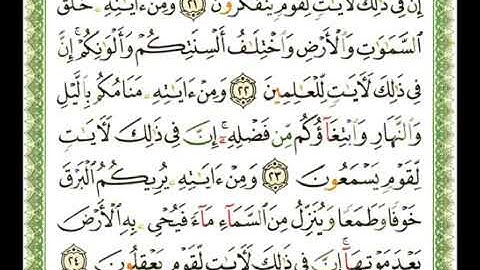 إِنَّ فِي ذَٰلِكَ لَآيَاتٍ لِّقَوْمٍ يَتَفَكَّرُونَ ﴿٢١﴾ وَمِنْ ءَايَـٰتِهِۦ خَلْقُ
ٱلسَّمَـٰوَٰتِ وَٱلْأَرْضِ وَٱخْتِلَـٰفُ أَلْسِنَتِكُمْ وَأَلْوَٰنِكُمْ ۚ إِنَّ
فِى ذَٰلِكَ لَـَٔايَـٰتٍ لِّلْعَـٰلِمِينَ ﴿٢٢﴾ وَمِنْ ءَايَـٰتِهِۦ مَنَامُكُم بِٱلَّيْلِ
وَٱلنَّهَارِ وَٱبْتِغَآؤُكُم مِّن فَضْلِهِۦٓ ۚ إِنَّ فِى ذَٰلِكَ لَـَٔايَـٰتٍ
لِّقَوْمٍ يَسْمَعُونَ ﴿٢٣﴾ وَمِنْ ءَايَـٰتِهِۦ يُرِيكُمُ ٱلْبَرْقَ
خَوْفًا وَطَمَعًا وَيُنَزِّلُ مِنَ ٱلسَّمَآءِ مَآءً فَيُحْىِۦ بِهِ ٱلْأَرْضَ
بَعْدَ مَوْتِهَآ ۚ إِنَّ فِى ذَٰلِكَ لَـَٔايَـٰتٍ لِّقَوْمٍ يَعْقِلُونَ ﴿٢٤﴾